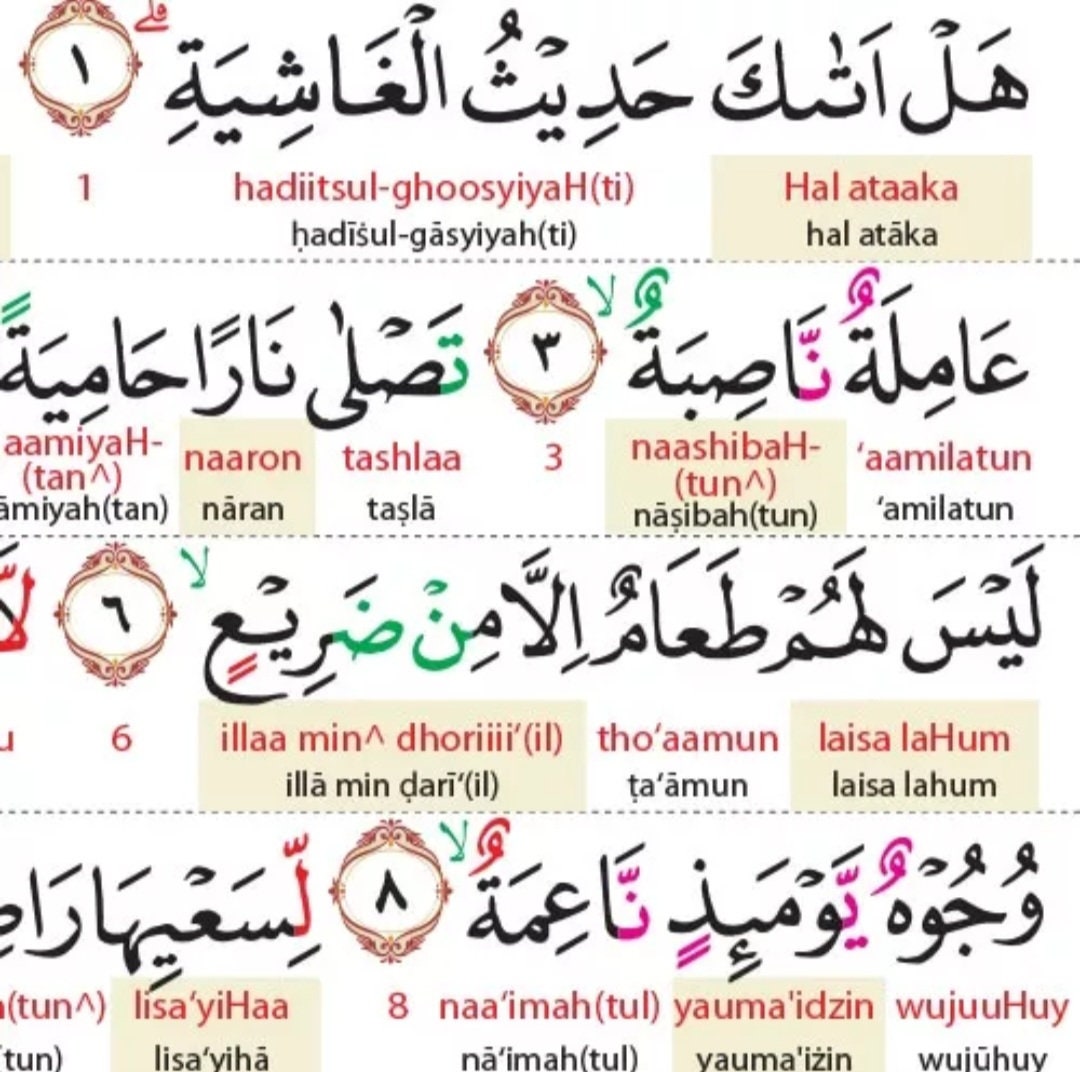 هَلْ اَتٰىكَ حَدِيْثُ الْغَاشِيَةِۗ ١
Hal ataaka hadiitsul-ghoosyiyaH(ti) 1
hal atāka ḥadīṡul-gāsyiyah(ti)
عَامِلَةٌ نَّاصِبَةٌ ۙ ٣ تَصْلٰى نَارًا حَامِيَةً
‘aamilatun naashibaH-(tun^) 3 tashlaa naaron aamiyaH-(tan^)
‘amilatun nāṣibah(tun) taṣlā nāran āmiyah(tan)
لَيْسَ لَهُمْ طَعَامٌ اِلَّا مِنْ ضَرِيْعٍ ۙ ٦ لَّا
laisa laHum tho‘aamun illaa min^ dhoriiii‘(il) 6 u
laisa lahum ṭa‘āmun illā min ḍarī‘(il)
وُجُوْهٌ يَّوْمَىِٕذٍ نَّاعِمَةٌ ۙ ٨ لِّسَعْيِهَا رَاض
wujuuHuy yauma'idzin naa‘imah(tul) 8 lisa‘yiHaa (tun^)
wujūhuy yauma'iżin nā‘imah(tul) lisa‘yihā (tun)